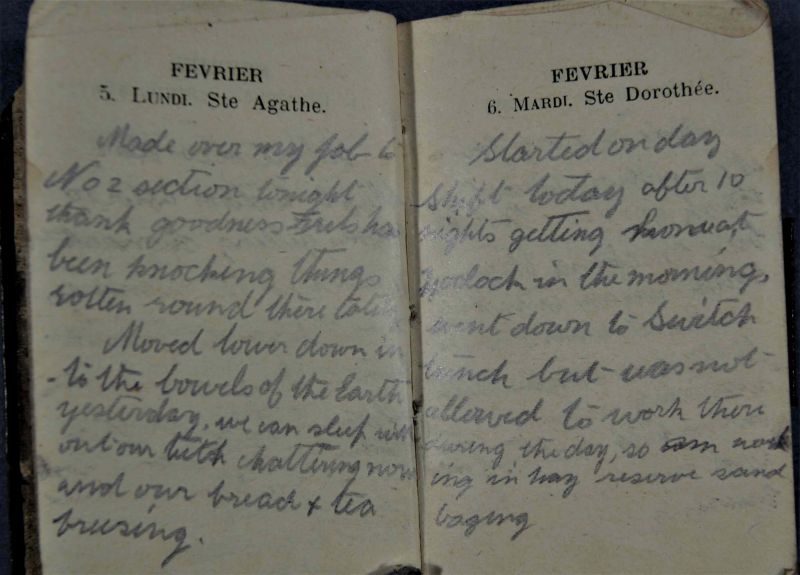 FEVRIER
5. LUNDI. Ste Agathe.
Made over my job to
No 2 section tonight
thank goodness Fritz has
been knocking things
rotten round there lately
Moved lower down in
-to the bowels of the Earth
yesterday. we can sleep with
out our teeth chattering now
and our bread & tea
freezing.
FEVRIER
6. MARDI. Ste Dorothée.
Started on day
shift today after 10
nights getting home at
oclock in the morning,
went down to Switch
trench but was not
allowed to work there
during the day, so am work
ing in reserve sand
baging